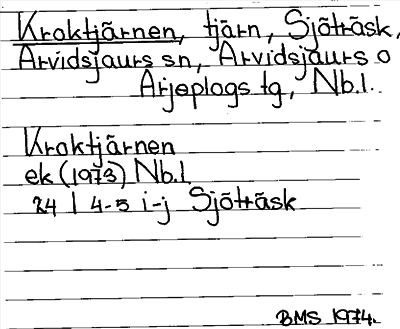 Kroktjärnen, tjärn, Sjöträsk,
Arvidsjaurs sn, Arvidsjaurs o
Arjeplogs tg, Nb.l.
Kroktjärnen
ek (1973) Nb.l
24 I 4-5 i-j Sjöträsk
BMS 1974.